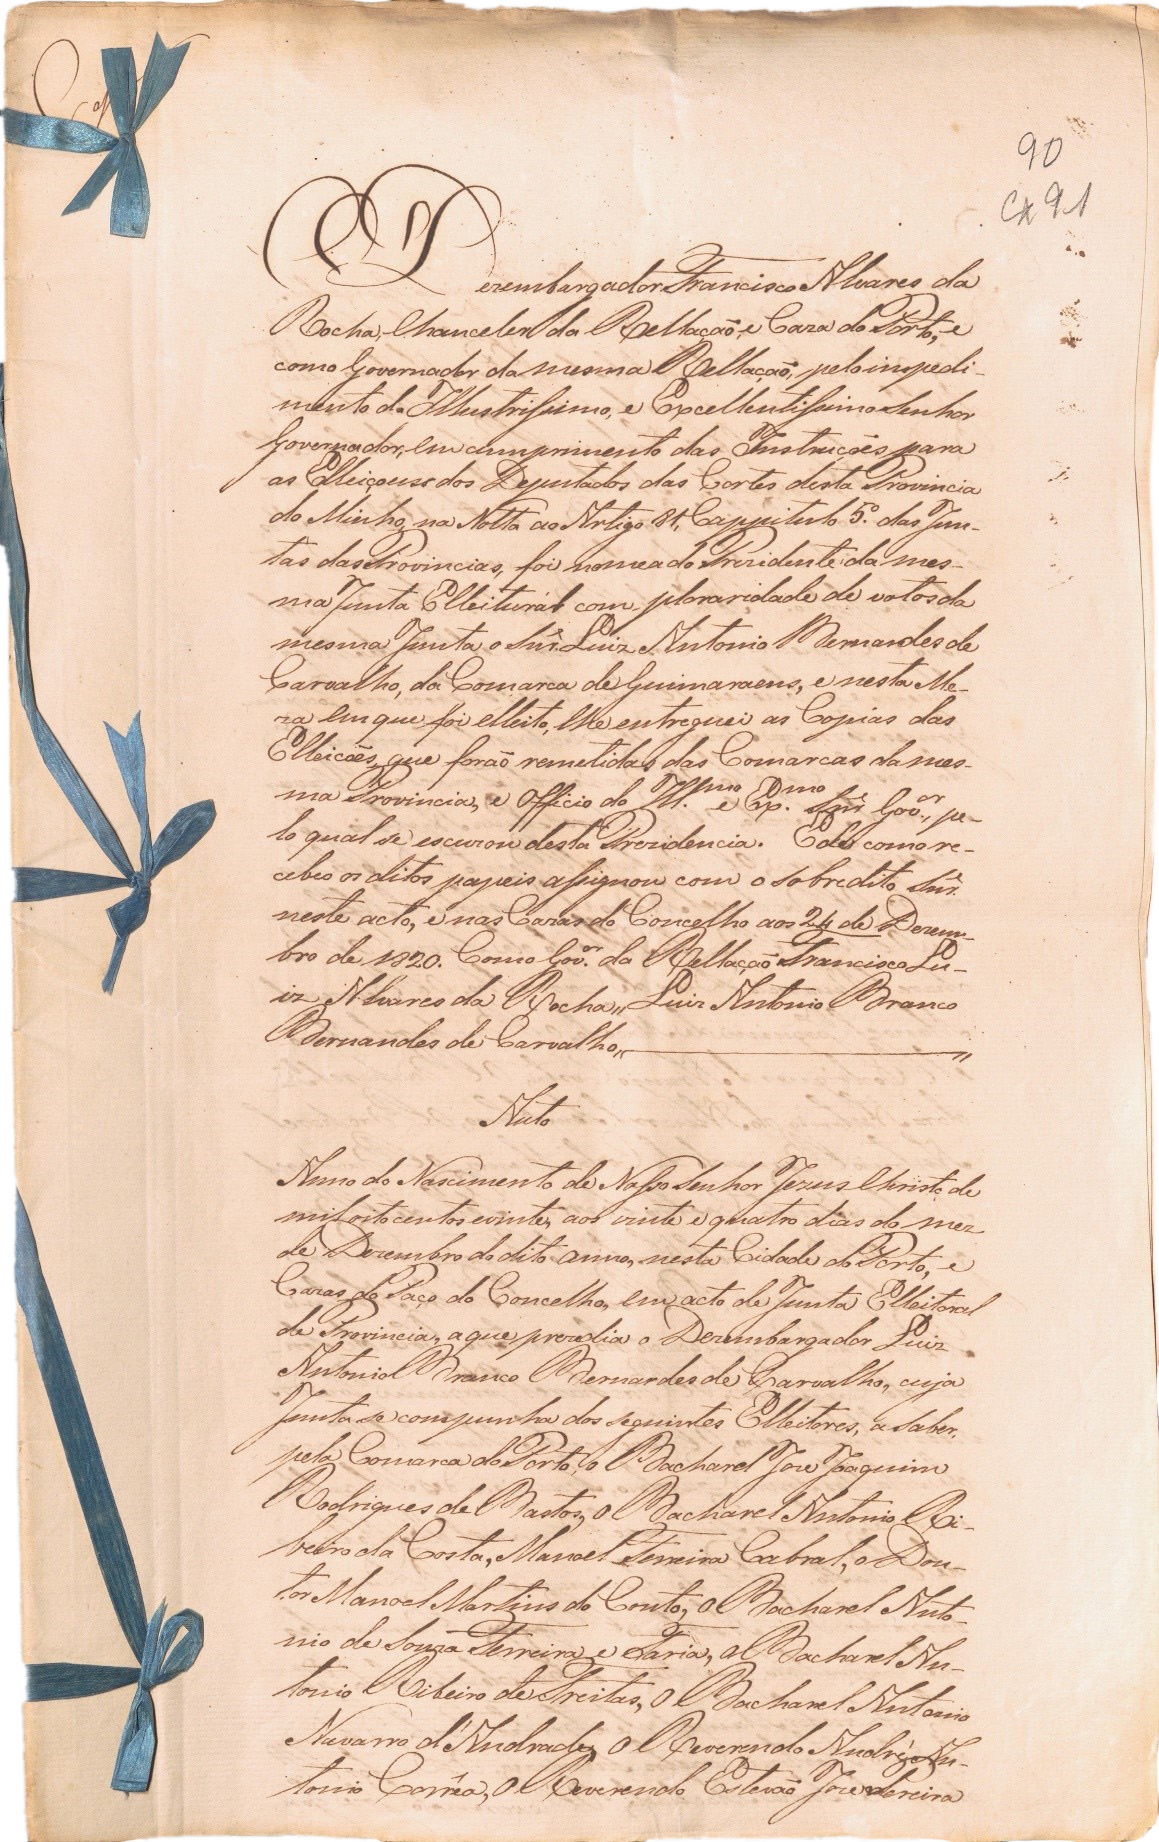 90
Cx 91
O Dezembargador Francisco Alvares da
Rocha, Chanceler da Rellação, e Caza do Porto, e
como Governador da mesma Rellação, pelo impedi-
mento do Illustrissimo, e Excellentissimo Senhor
Governador, em cumprimento das Instrucções para
as Elleiçoens dos Deputados das Cortes desta Provincia
do Minho, na Notta ao Artigo 81, Cappitulo 5.º das Jun-
tas das Provincias, foi nomeado Prezidente da mes-
ma Junta Elleiturál com pluraridade de votos da
mesma Junta o Snr. Luiz Antonio Bernardes de
Carvalho, da Comarca de Guimaraens, e nesta Me-
za em que foi elleito, lhe entreguei as Copias das
Elleicões, que forão remetidas das Comarcas da mes-
ma Provincia, e Officio do Ill.mo e Exp.mo Snr. Gov.or, pe-
lo qual se escuzou desta Prezidencia. E de como re-
cebeo os ditos papeis assignou com o sobredito Snr.
neste acto, e nas Cazas do Concelho aos 24 de Dezem-
bro de 1820. Como Gov.or da Rellação Francisco Lu-
iz Alvares da Rocha,, Luiz Antonio Branco
Bernardes de Carvalho,,
Auto
Anno do Nascimento de Nosso Senhor Jezus Christo de
mil oito centos e vinte, aos vinte e quatro dias do mez
de Dezembro do dito anno, nesta Cidade do Porto, e
Cazas do Paço do Concelho, em acto de Junta Elleitoral
de Provincia, a que prezedia o Dezembargador Luiz
Antonio Branco Bernardes de Carvalho, cuja
Junta se compunha dos seguintes Elleitores, a saber.
pela Comarca do Porto, o Bacharel Joze Joaquim
Rodrigues de Bastos, o Bacharel Antonio Ri-
beiro da Costa, Manoel Ferreira Cabral, o Dou-
tor Manoel Martins do Couto, o Bacharel Anto-
nio de Souza Ferreira e Faria, o Bacharel An-
tonio Ribeiro de Freitas, o Bacharel Antonio
Navarro d'Andrade, o Reverendo André An-
tonio Corrêa, o Reverendo Estevão Joze Pereira